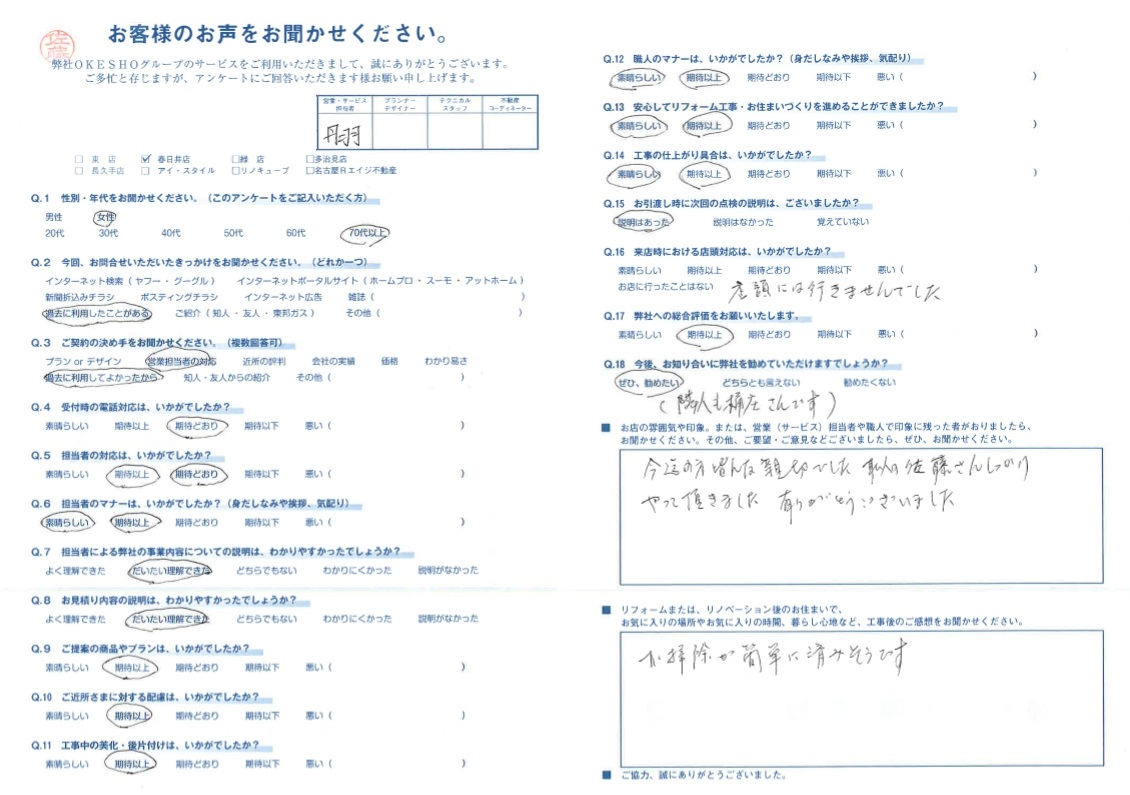 佐藤
お客様のお声をお聞かせください。
弊社OKESHOグループのサービスをご利用いただきまして、誠にありがとうございます。
ご多忙と存じますが、アンケートにご回答いただきます様お願い申し上げます。
営業・サービス担当者 プランナーデザイナー テクニカルスタッフ 不動産コーディネーター
丹羽
□ 東 店 ☑ 春日井店 □緑 店 □多治見店
□ 長久手店 □ アイ・スタイル □リノキューブ □名古屋Rエイジ不動産
Q.1 性別・年代をお聞かせください。(このアンケートをご記入いただく方)
男性 女性
20代 30代 40代 50代 60代 70代以上
Q.2 今回、お問合せいただいたきっかけをお聞かせください。(どれか一つ)
インターネット検索(ヤフー・グーグル) インターネットポータルサイト(ホームプロ・スーモ・アットホーム)
新聞折込みチラシ ポスティングチラシ インターネット広告 雑誌( )
過去に利用したことがある ご紹介(知人・友人・東邦ガス) その他( )
Q.3 ご契約の決め手をお聞かせください。(複数回答可)
プラン or デザイン 営業担当者の対応 近所の評判 会社の実績 価格 わかり易さ
過去に利用してよかったから 知人・友人からの紹介 その他( )
Q.4 受付時の電話対応は、いかがでしたか?
素晴らしい 期待以上 期待どおり 期待以下 悪い( )
Q.5 担当者の対応は、いかがでしたか?
素晴らしい 期待以上 期待どおり 期待以下 悪い( )
Q.6 担当者のマナーは、いかがでしたか?(身だしなみや挨拶、気配り)
素晴らしい 期待以上 期待どおり 期待以下 悪い( )
Q.7 担当者による弊社の事業内容についての説明は、わかりやすかったでしょうか?
よく理解できた だいたい理解できた どちらでもない わかりにくかった 説明がなかった
Q.8 お見積り内容の説明は、わかりやすかったでしょうか?
よく理解できた だいたい理解できた どちらでもない わかりにくかった 説明がなかった
Q.9 ご提案の商品やプランは、いかがでしたか?
素晴らしい 期待以上 期待どおり 期待以下 悪い( )
Q.10 ご近所さまに対する配慮は、いかがでしたか?
素晴らしい 期待以上 期待どおり 期待以下 悪い( )
Q.11 工事中の美化・後片付けは、いかがでしたか?
素晴らしい 期待以上 期待どおり 期待以下 悪い( )
Q.12 職人のマナーは、いかがでしたか?(身だしなみや挨拶、気配り)
素晴らしい 期待以上 期待どおり 期待以下 悪い( )
Q.13 安心してリフォーム工事・お住まいづくりを進めることができましたか?
素晴らしい 期待以上 期待どおり 期待以下 悪い( )
Q.14 工事の仕上がり具合は、いかがでしたか?
素晴らしい 期待以上 期待どおり 期待以下 悪い( )
Q.15 お引渡し時に次回の点検の説明は、ございましたか?
説明はあった 説明はなかった 覚えていない
Q.16 来店時における店頭対応は、いかがでしたか?
素晴らしい 期待以上 期待どおり 期待以下 悪い( )
お店に行ったことはない 店頭には行きませんでした
Q.17 弊社への総合評価をお願いいたします。
素晴らしい 期待以上 期待どおり 期待以下 悪い( )
Q.18 今後、お知り合いに弊社を勧めていただけますでしょうか?
ぜひ、勧めたい どちらとも言えない 勧めたくない
(隣人も桶庄さんです)
■ お店の雰囲気や印象。または、営業(サービス)担当者や職人で印象に残った者がおりましたら、
お聞かせください。その他、ご要望・ご意見などございましたら、ぜひ、お聞かせください。
今迄の方皆んな親切でした 職人の佐藤さんしっかり
やって頂きました 有りがとうございました
■ リフォームまたは、リノベーション後のお住まいで、
お気に入りの場所やお気に入りの時間、暮らし心地など、工事後のご感想をお聞かせください。
お掃除が簡単に済みそうです
■ ご協力、誠にありがとうございました。